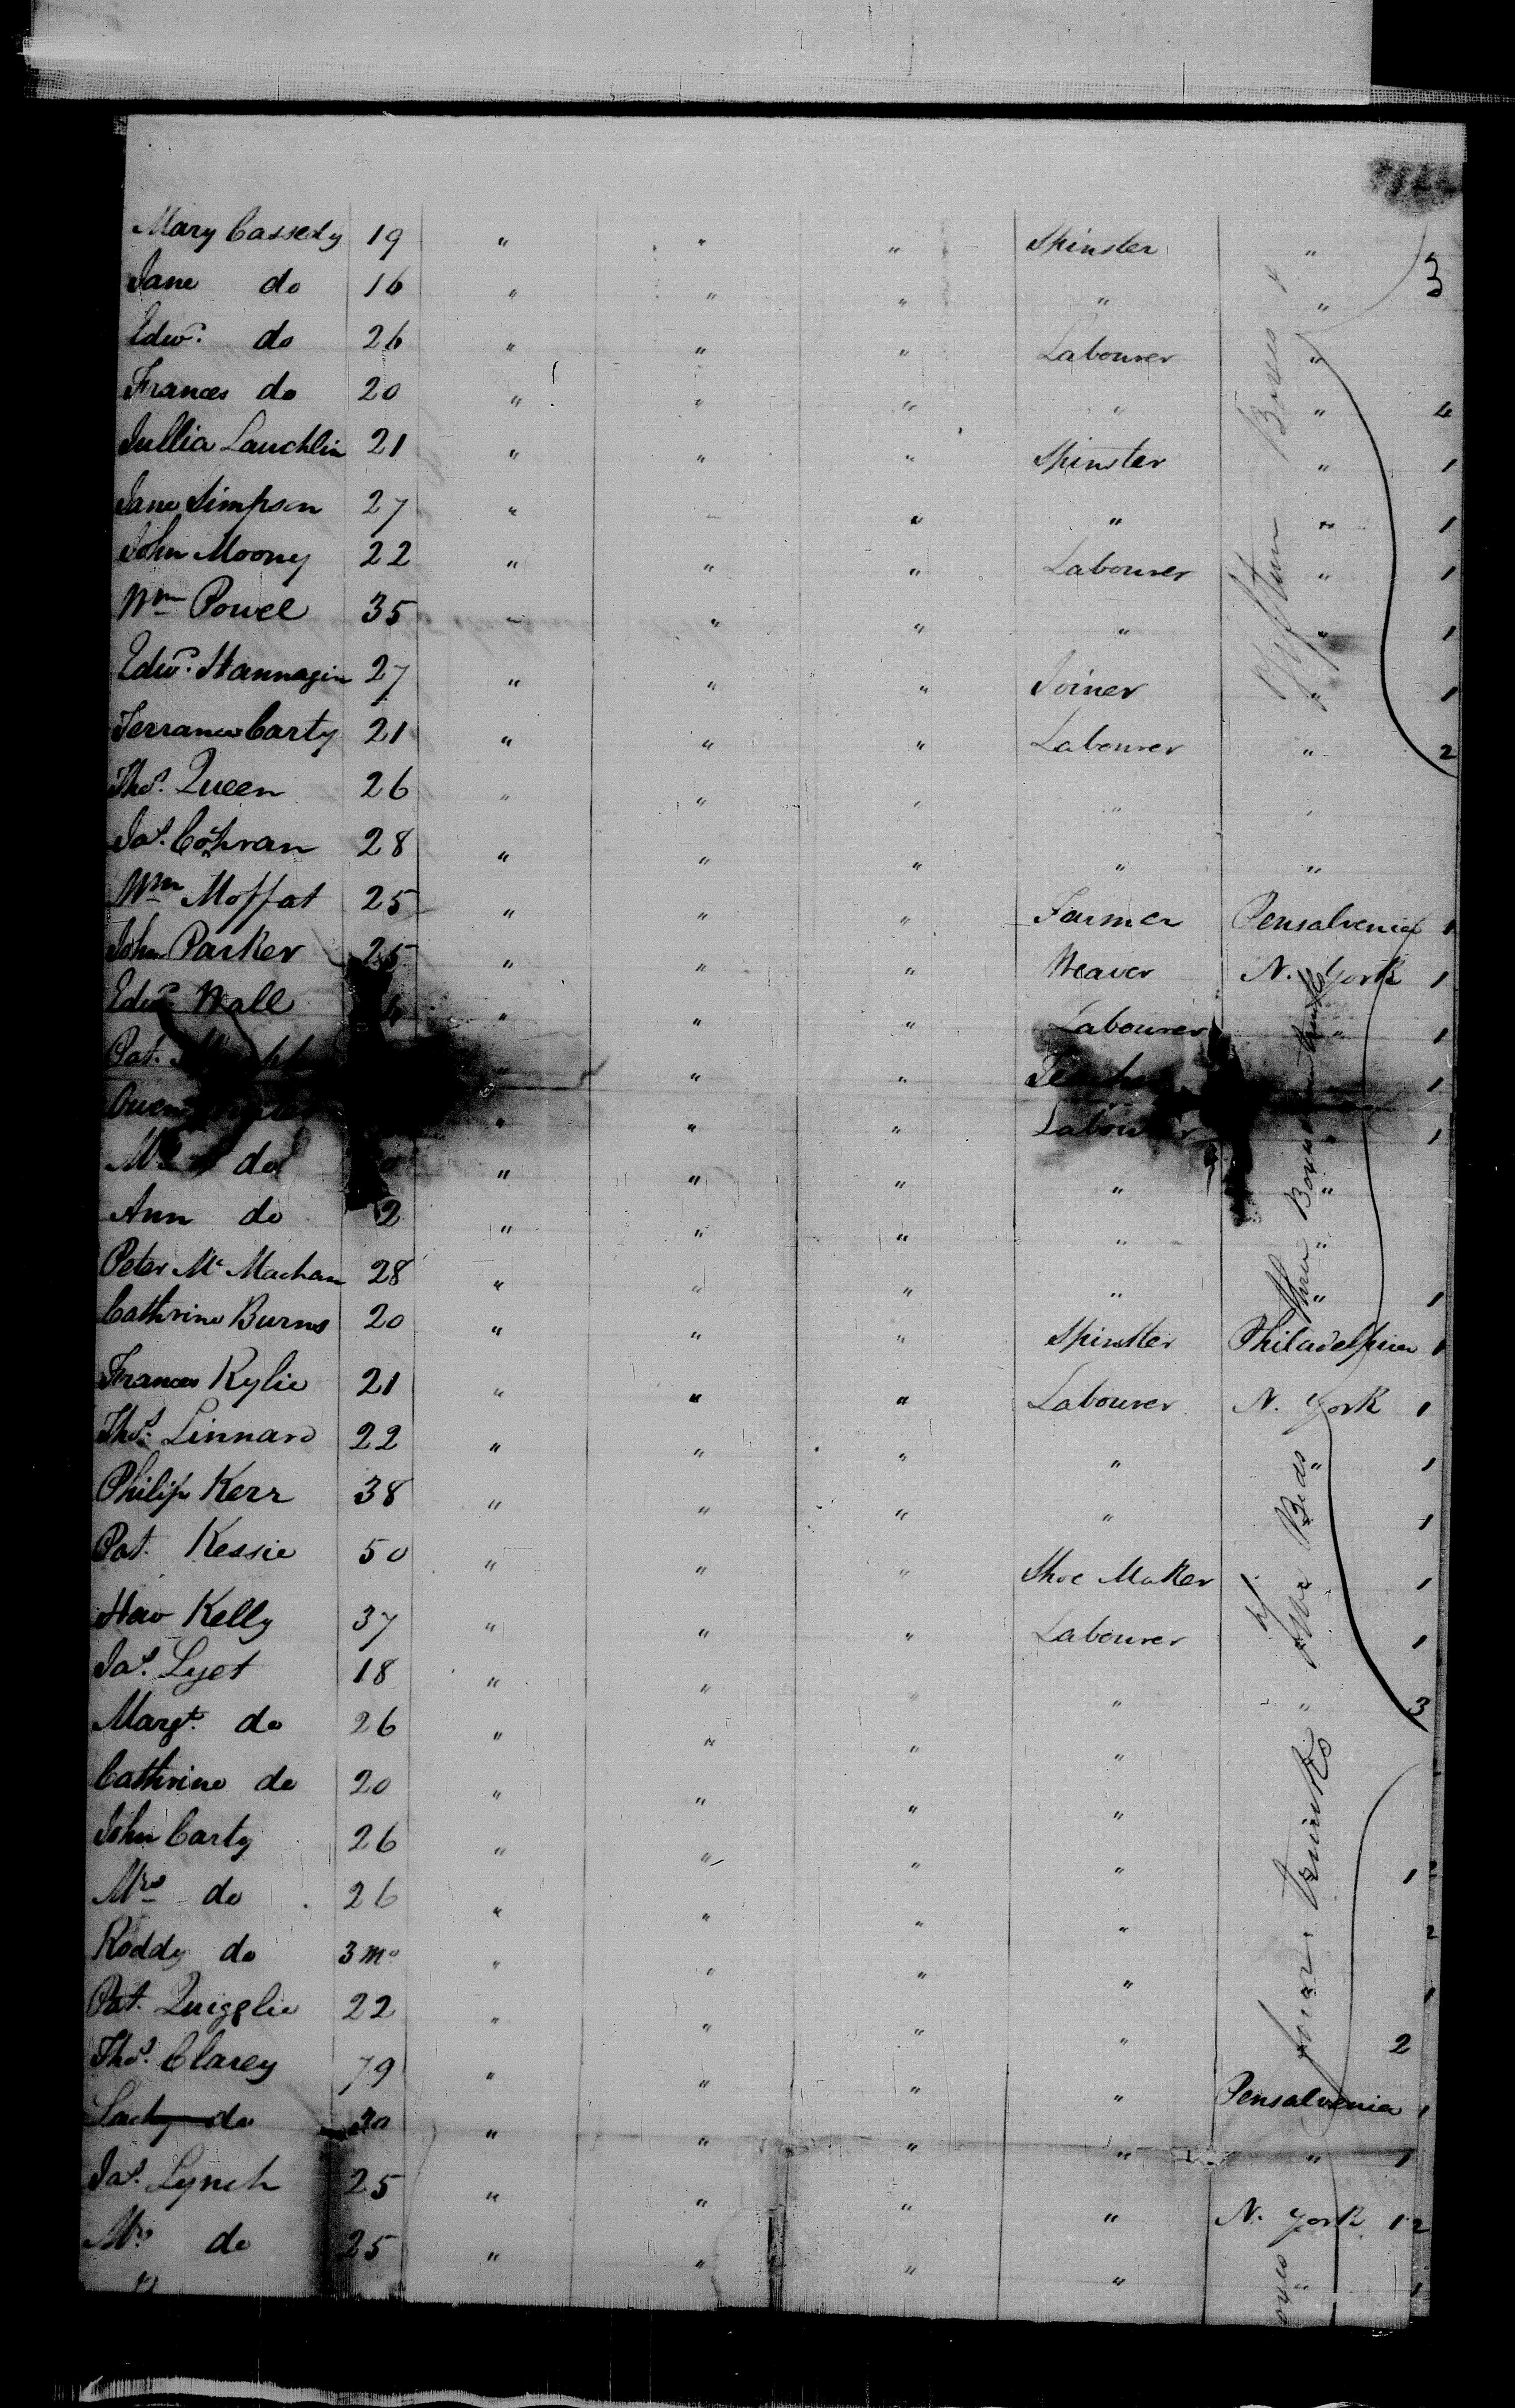 Mary Cassedy 19 " " " Spinster " 3
Jane do 16 " " " " "
Edwd. do 26 " " " Labourer "
Frances do 20 " " " " " 4
Jullia Lauchlin 21 " " " Spinster " 1
Jane Simpson 27 " " " " " 1
John Moony 22 " " " Labourer " 1
Wm Powel 35 " " " " " 1
Edwd. Hannagin 27 " " " Joiner " 1
Terrance Carty 21 " " " Labourer " 2
Thos. Queen 26 " " " " "
Jas. Cochran 28 " " " " "
Wm Moffat 25 " " " Farmer Pensalvenia 1
John Parker 25 " " " Weaver N. York 1
Edwd. Wall " " " Labourer " 1
Pat. " " " " 1
Owen " " " Labourer " 1
do " " " " "
Ann do 2 " " " " "
Peter Mc Machan 28 " " " " " 1
Cathrine Burns 20 " " " Spinster Philadelphia 1
Frances Kylie 21 " " " Labourer N. York 1
Thos. Linnard 22 " " " " " 1
Philip Kerr 38 " " " " 1
Pat. Kessie 50 " " " Shoe Maker 1
Kelly 37 " " " Labourer 1
Jas. Lyet 18 " " " " " 3
Margt. do 26 " " " "
Cathrine do 20 " " " "
John Carty 26 " " " " 1
Mrs do 26 " " " " 2
Roddy do 3 mo " " " " 1
Pat. Quigglie 22 " " " " 2
Thos. Clarey 79 " " " " Pensalvenia 1
do 30 " " " " " 1
Jas. Lynch 25 " " " " N. York 1 2
Mrs do 25 " " " " " 1
Boxes &
three Boxes
two Beds
four trunks